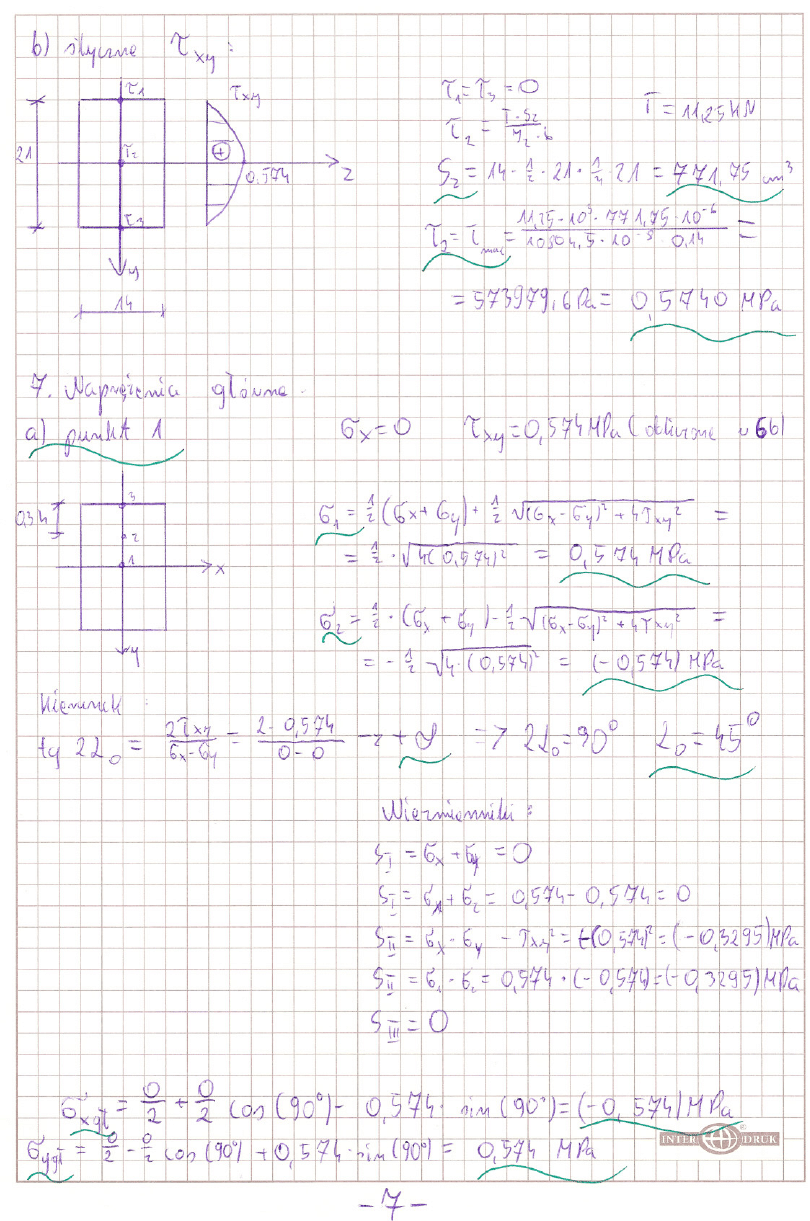 b) styczne τxy:
τ1
τxy
τ1=τ3=0
T=11,25kN
τ2 = T·Sz / Jz·b
21
τ2
+
0,574
z
Sz = 14·1/2·21·1/4·21 = 771,75 cm³
τ3
τ2=τmax= 11,25·10³·771,75·10⁻⁶ / 10804,5·10⁻⁸·0,14 =
y
14
=573979,6Pa= 0,5740 MPa
7. Naprężenia główne.
a) punkt 1
σx=0 τxy=0,574MPa (obliczone w 6b)
3
0,3h
2
1
x
y
σ1 = 1/2(σx+σy)+1/2 √(σx-σy)²+4τxy² =
= 1/2·√4(0,574)² = 0,574 MPa
σ2 = 1/2·(σx+σy)-1/2·√(σx-σy)²+4τxy² =
= -1/2 √4·(0,574)² = (-0,574) MPa
Kierunek:
tg 2α0 = 2τxy / σx-σy = 2·0,574 / 0-0 → +∞ → 2α0=90° α0=45°
Niezmienniki:
SI = σx+σy = 0
SI = σ1+σ2 = 0,574-0,574=0
SII = σx·σy - τxy² = -(0,574)² = (-0,3295)MPa
SII = σ1·σ2 = 0,574·(-0,574)=(-0,3295)MPa
SIII = 0
σxgł = 0/2 + 0/2 cos(90°)- 0,574·sin(90°)=(-0,574)MPa
σygł = 0/2 - 0/2 cos(90°)+0,574·sin(90°)= 0,574 MPa
INTER DRUK
-7-